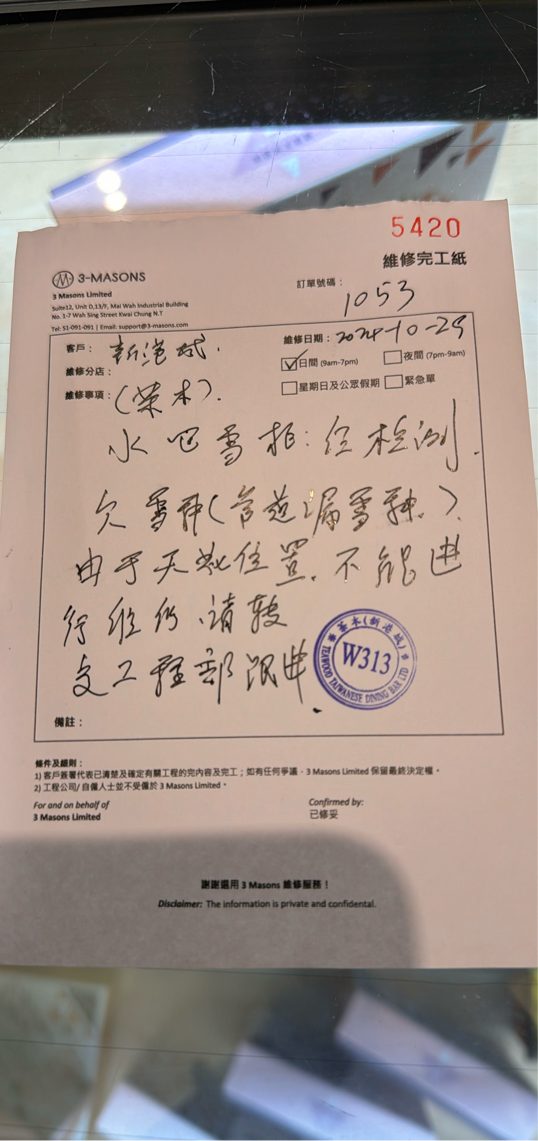 5420
維修完工紙
3-MASONS
3 Masons Limited
Suite12, Unit D,13/F, Mai Wah Industrial Building
No. 1-7 Wah Sing Street Kwai Chung N.T
Tel: 51-091-091 | Email: support@3-masons.com
訂單號碼：
1053
客戶：新港城.
維修日期：2024-10-29
維修分店：
日間 (9am-7pm) 夜間 (7pm-9am)
維修事項：
星期日及公眾假期 緊急單
水吧雪柜：经检测.
欠雪种（管道漏雪种.）
由于天 位置.不能进
行维 .请转
交工程部跟进.
茶木(新港城)
W313
TEAWOOD TAIWANESE DINING BAR LTD
備註：
條件及細則：
1) 客戶簽署代表已清楚及確定有關工程的完內容及完工；如有任何爭議，3 Masons Limited 保留最終決定權。
2) 工程公司/ 自僱人士並不受僱於 3 Masons Limited。
For and on behalf of
3 Masons Limited
Confirmed by:
已修妥
謝謝選用 3 Masons 維修服務！
Disclaimer: The information is private and confidential.